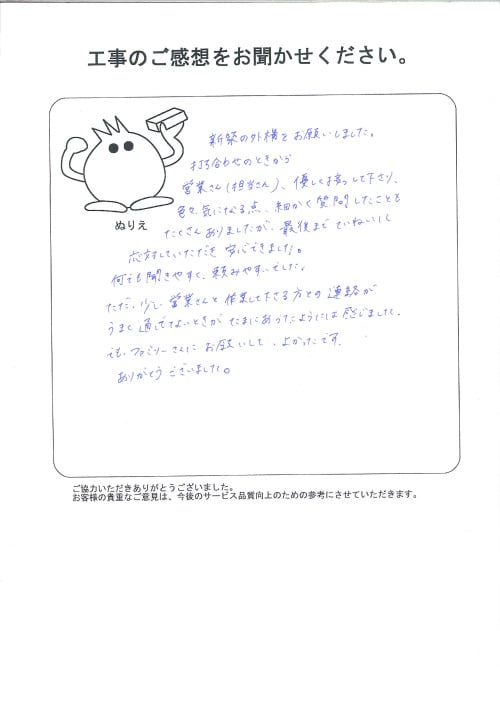 工事のご感想をお聞かせください。
新築の外構をお願いしました。
打ち合わせのときから
営業さん(担当さん)、優しく接して下さり、
色々、気になる点、細かく質問したことも
たくさんありましたが、最後までていねいに
応対していただき安心できました。
何でも聞きやすく、頼みやすいでした。
ただ、少し営業さんと作業して下さる方との連絡が
うまく通じてないときがたまにあったようには感じました。
でも、ファミリーさんにお願いして、よかったです。
ありがとうございました。
ぬりえ
ご協力いただきありがとうございました。
お客様の貴重なご意見は、今後のサービス品質向上のための参考にさせていただきます。